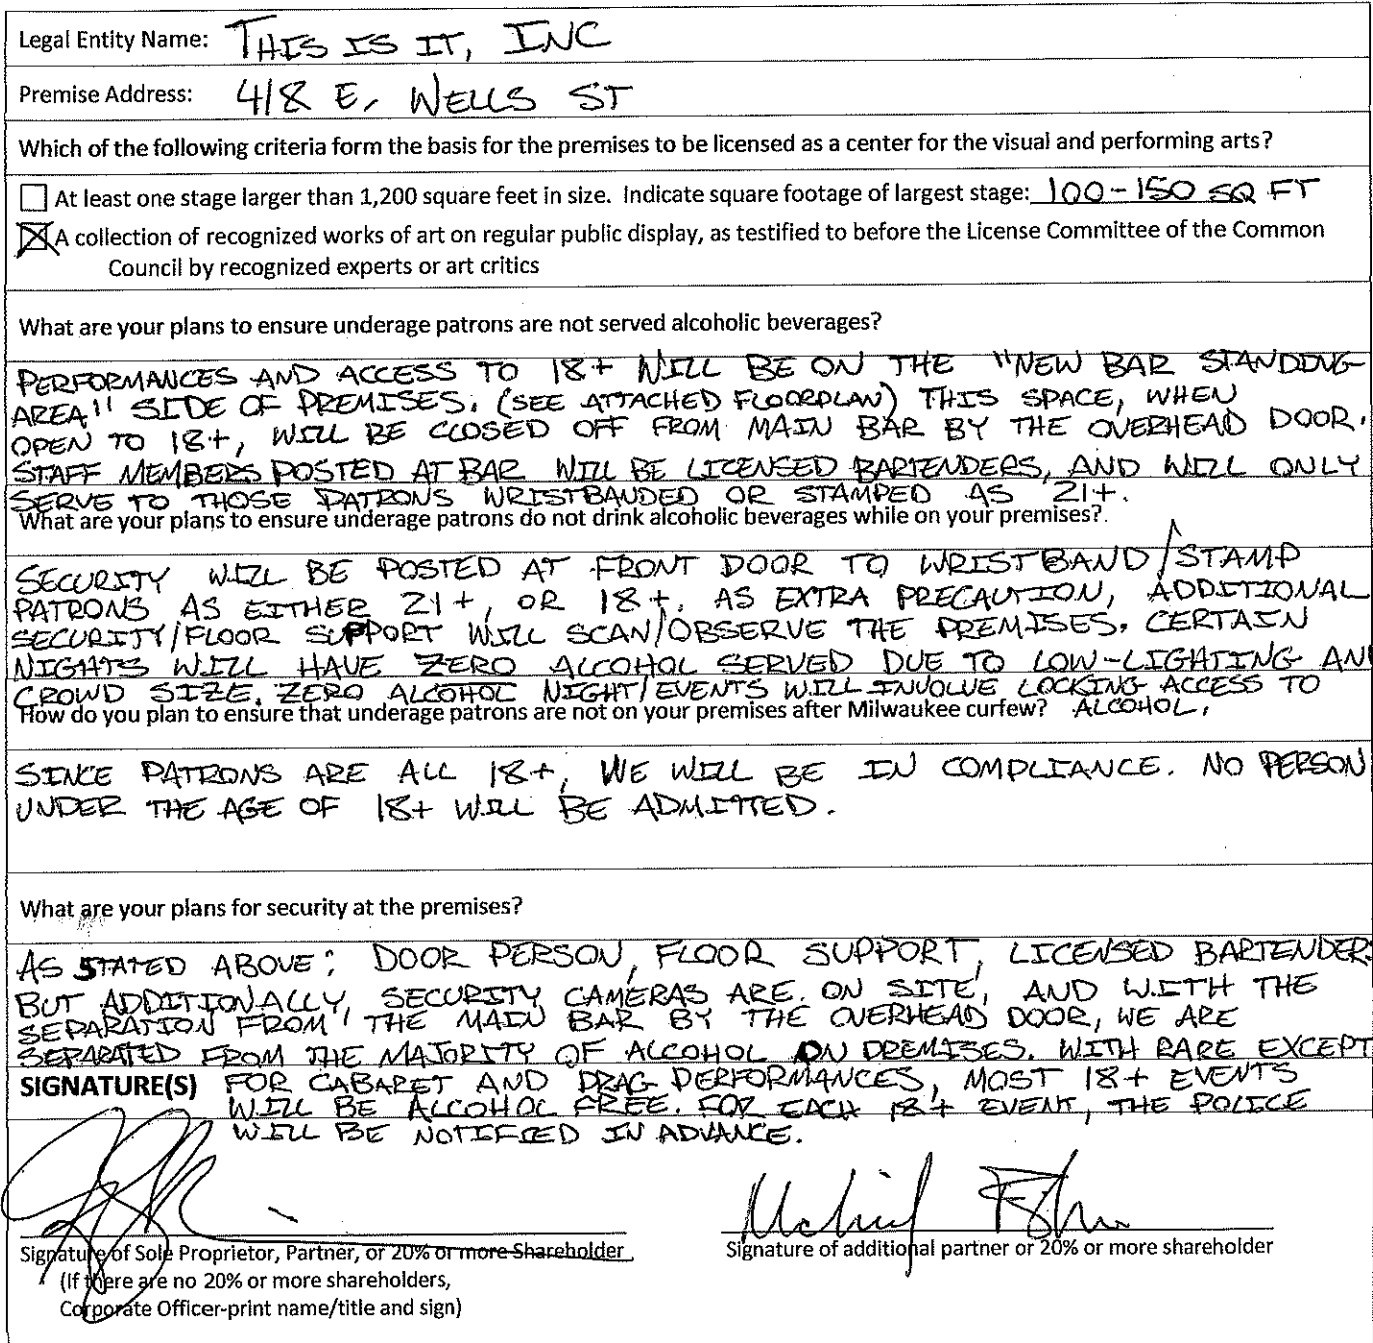 Legal Entity Name: THIS IS IT, INC
Premise Address: 418 E. WELLS ST
Which of the following criteria form the basis for the premises to be licensed as a center for the visual and performing arts?
At least one stage larger than 1,200 square feet in size. Indicate square footage of largest stage: 100-150 SQ FT
A collection of recognized works of art on regular public display, as testified to before the License Committee of the Common
Council by recognized experts or art critics
What are your plans to ensure underage patrons are not served alcoholic beverages?
PERFORMANCES AND ACCESS TO 18+ WILL BE ON THE "NEW BAR STANDING
AREA" SIDE OF PREMISES. (SEE ATTACHED FLOORPLAN) THIS SPACE, WHEN
OPEN TO 18+, WILL BE CLOSED OFF FROM MAIN BAR BY THE OVERHEAD DOOR.
STAFF MEMBERS POSTED AT BAR WILL BE LICENSED BARTENDERS, AND WILL ONLY
SERVE TO THOSE PATRONS WRISTBANDED OR STAMPED AS 21+.
What are your plans to ensure underage patrons do not drink alcoholic beverages while on your premises?
SECURITY WILL BE POSTED AT FRONT DOOR TO WRISTBAND/STAMP
PATRONS AS EITHER 21+, OR 18+. AS EXTRA PRECAUTION, ADDITIONAL
SECURITY/FLOOR SUPPORT WILL SCAN/OBSERVE THE PREMISES. CERTAIN
NIGHTS WILL HAVE ZERO ALCOHOL SERVED DUE TO LOW-LIGHTING AN
CROWD SIZE. ZERO ALCOHOL NIGHT/EVENTS WILL INVOLVE LOCKING ACCESS TO
How do you plan to ensure that underage patrons are not on your premises after Milwaukee curfew? ALCOHOL.
SINCE PATRONS ARE ALL 18+, WE WILL BE IN COMPLIANCE. NO PERSON
UNDER THE AGE OF 18+ WILL BE ADMITTED.
What are your plans for security at the premises?
AS STATED ABOVE: DOOR PERSON, FLOOR SUPPORT, LICENSED BARTENDERS
BUT ADDITIONALLY, SECURITY CAMERAS ARE ON SITE, AND WITH THE
SEPARATION FROM THE MAIN BAR BY THE OVERHEAD DOOR, WE ARE
SEPARATED FROM THE MAJORITY OF ALCOHOL ON PREMISES. WITH RARE EXCEPT
SIGNATURE(S) FOR CABARET AND DRAG PERFORMANCES, MOST 18+ EVENTS
WILL BE ALCOHOL FREE. FOR EACH 18+ EVENT, THE POLICE
WILL BE NOTIFIED IN ADVANCE.
Signature of Sole Proprietor, Partner, or 20% or more Shareholder
(If there are no 20% or more shareholders,
Corporate Officer-print name/title and sign)
Signature of additional partner or 20% or more shareholder